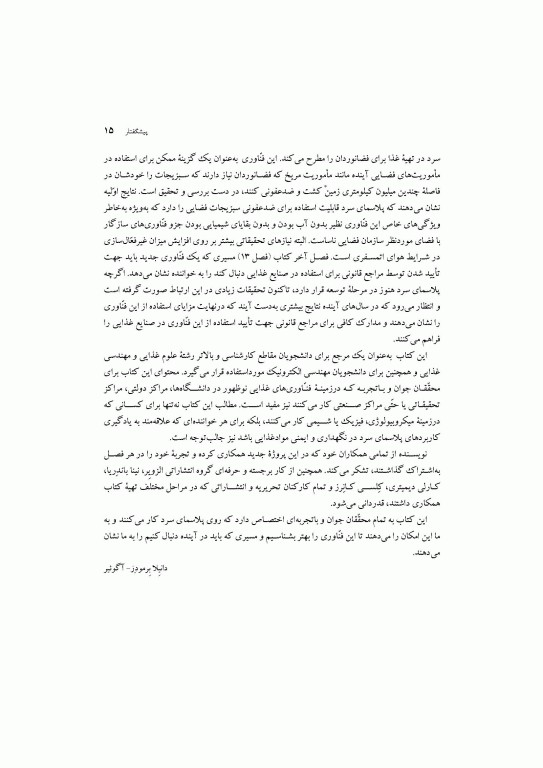 پیشگفتار ۱۵
سرد در تهیهٔ غذا برای فضانوردان را مطرح می‌کند. این فنّاوری به‌عنوان یک گزینهٔ ممکن برای استفاده در
مأموریت‌های فضایی آینده مانند مأموریت مریخ که فضانوردان نیاز دارند که سبزیجات را خودشان در
فاصلهٔ چندین میلیون کیلومتری زمین کشت و ضدعفونی کنند، در دست بررسی و تحقیق است. نتایج اوّلیه
نشان می‌دهند که پلاسمای سرد قابلیت استفاده برای ضدعفونی سبزیجات فضایی را دارد که به‌ویژه به‌خاطر
ویژگی‌های خاص این فنّاوری نظیر بدون آب بودن و بدون بقایای شیمیایی بودن جزو فنّاوری‌های سازگار
با فضای موردنظر سازمان فضایی ناساست. البته نیازهای تحقیقاتی بیشتر بر روی افزایش میزان غیرفعّال‌سازی
در شرایط هوای اتمسفری است. فصل آخر کتاب (فصل ۱۳) مسیری که یک فنّاوری جدید باید جهت
تأیید شدن توسط مراجع قانونی برای استفاده در صنایع غذایی دنبال کند را به خواننده نشان می‌دهد. اگرچه
پلاسمای سرد هنوز در مرحلهٔ توسعه قرار دارد، تاکنون تحقیقات زیادی در این ارتباط صورت گرفته است
و انتظار می‌رود که در سال‌های آینده نتایج بیشتری به‌دست آیند که درنهایت مزایای استفاده از این فنّاوری
را نشان می‌دهند و مدارک کافی برای مراجع قانونی جهت تأیید استفاده از این فنّاوری در صنایع غذایی را
فراهم می‌کنند.
این کتاب به‌عنوان یک مرجع برای دانشجویان مقاطع کارشناسی و بالاتر رشتهٔ علوم غذایی و مهندسی
غذایی و همچنین برای دانشجویان مهندسی الکترونیک مورداستفاده قرار می‌گیرد. محتوای این کتاب برای
محقّقان جوان و باتجربه که درزمینهٔ فنّاوری‌های غذایی نوظهور در دانشگاه‌ها، مراکز دولتی، مراکز
تحقیقاتی یا حتّی مراکز صنعتی کار می‌کنند نیز مفید است. مطالب این کتاب نه‌تنها برای کسانی که
درزمینهٔ میکروبیولوژی، فیزیک یا شیمی کار می‌کنند، بلکه برای هر خواننده‌ای که علاقه‌مند به یادگیری
کاربردهای پلاسمای سرد در نگهداری و ایمنی موادغذایی باشد نیز جالب‌توجه است.
نویسنده از تمامی همکاران خود که در این پروژهٔ جدید همکاری کرده و تجربهٔ خود را در هر فصل
به‌اشتراک گذاشتند، تشکر می‌کند. همچنین از کار برجسته و حرفه‌ای گروه انتشاراتی الزویر، نینا باندِریا،
کارلی دیمیتری، کِلسی کانِرز و تمام کارکنان تحریریه و انتشاراتی که در مراحل مختلف تهیهٔ کتاب
همکاری داشتند، قدردانی می‌شود.
این کتاب به تمام محقّقان جوان و باتجربه‌ای اختصاص دارد که روی پلاسمای سرد کار می‌کنند و به
ما این امکان را می‌دهند تا این فنّاوری را بهتر بشناسیم و مسیری که باید در آینده دنبال کنیم را به ما نشان
می‌دهند.
دانیِلا بِرمودِز- آگوئیر